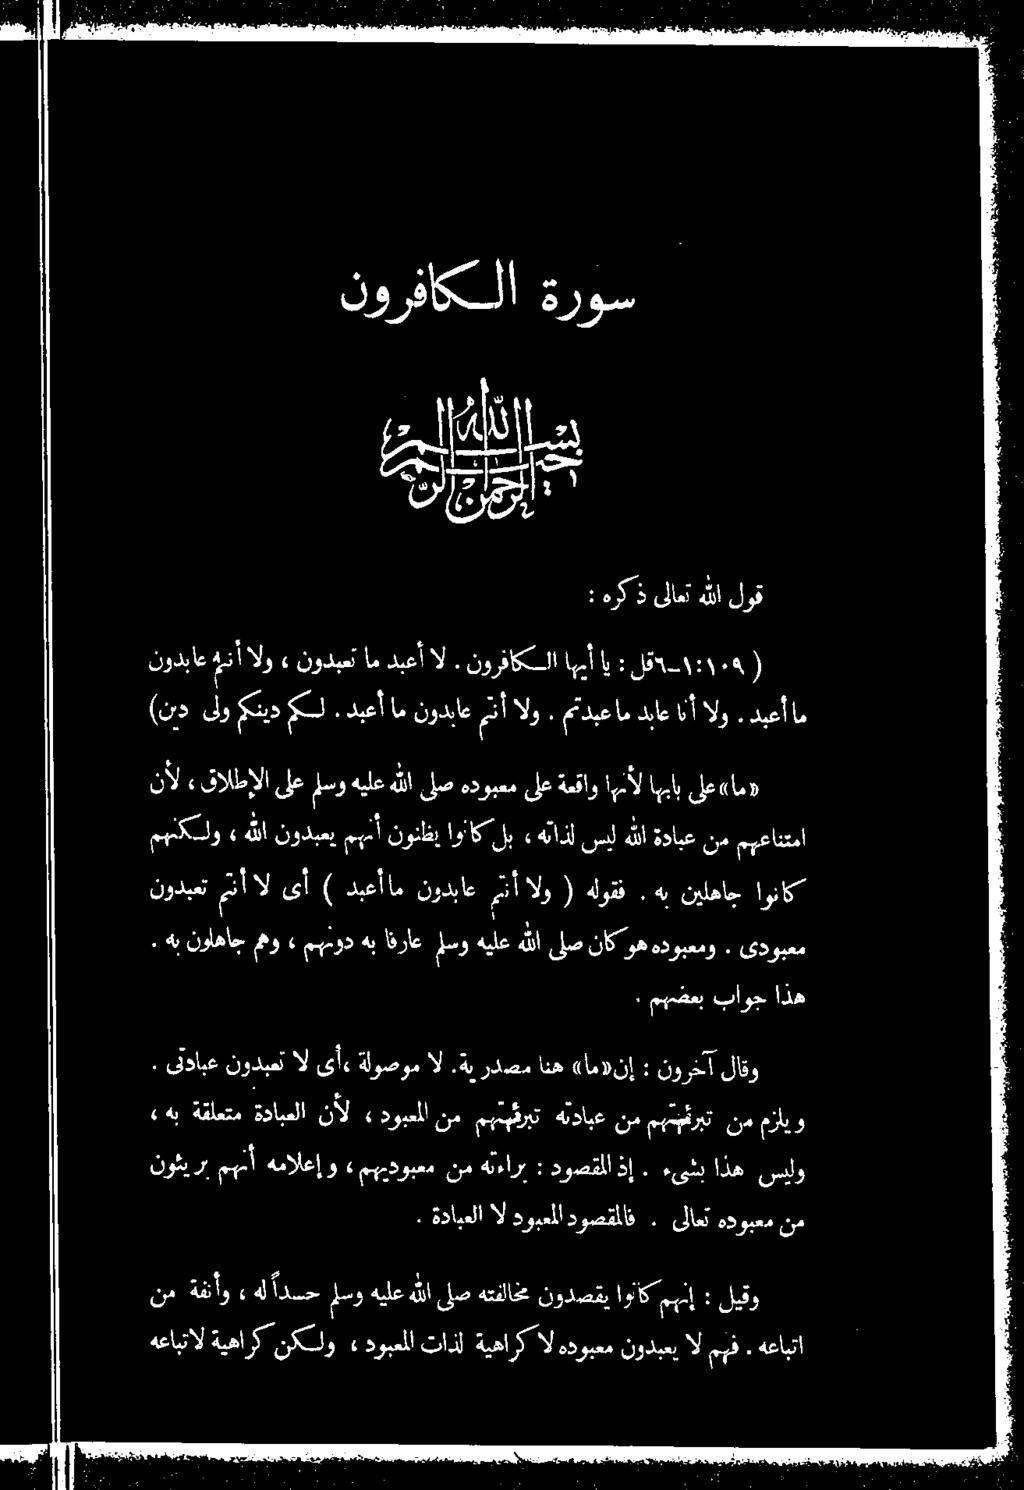 سورة الـكافرون
بسم الله الرحمن الرحيم
قول الله تعالى ذكره :
( ١٠٩:١-٦قل : يا أيها الـكافرون . لا أعبد ما تعبدون ، ولا أنتم عابدون
ما أعبد . ولا أنا عابد ما عبدتم . ولا أنتم عابدون ما أعبد . لـكم دينكم ولى دين)
«ما» على بابها لأنها واقعة على معبوده صلى الله عليه وسلم على الإطلاق ، لأن
امتناعهم من عبادة الله ليس لذاته ، بل كانوا يظنون أنهم يعبدون الله ، ولـكنهم
كانوا جاهلين به . فقوله ( ولا أنتم عابدون ما أعبد ) أى لا أنتم تعبدون
معبودى . ومعبوده هو كان صلى الله عليه وسلم عارفا به دونهم ، وهم جاهلون به .
هذا جواب بعضهم .
وقال آخرون : إن «ما» هنا مصدرية . لا موصولة ، أى لا تعبدون عبادتى .
ويلزم من تبرئتهم من عبادته تبرئتهم من المعبود ، لأن العبادة متعلقة به ،
وليس هذا بشىء . إذ المقصود : براءته من معبوديهم ، وإعلامه أنهم بريئون
من معبوده تعالى . فالمقصود المعبود لا العبادة .
وقيل : إنهم كانوا يقصدون مخالفته صلى الله عليه وسلم حسداً له ، وأنفة من
اتباعه . فهم لا يعبدون معبوده لا كراهية لذات المعبود ، ولـكن كراهية لاتباعه